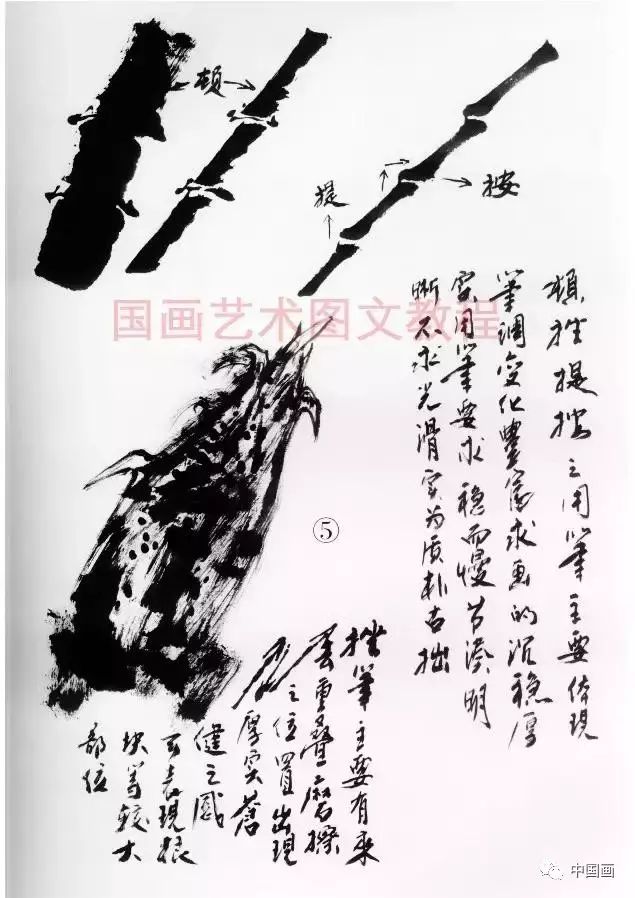 顿
提
按
国画艺术图文教程
顿挫提按之用笔主要体现
笔调变化丰富求画的沉稳厚
实用笔要求稳而慢节凑明
晰不求光滑实为质朴古拙
⑤
挫笔主要有来
重叠磨擦
之位置出现
厚实苍
健之感
可表现根
块等较大
部位
中国画